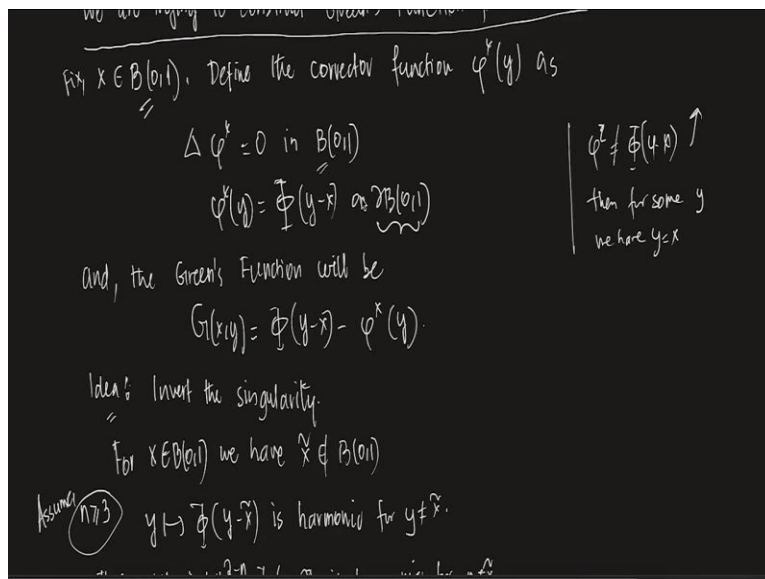 we are trying to construct Green's Function
Fix x ∈ B(0,1). Define the corrector function φˣ(y) as
Δ φˣ = 0 in B(0,1)
φˣ(y) = Φ(y-x) on ∂B(0,1)
φˣ ≠ Φ(y-x) ↑
then for some y
we have y=x
and, the Green's Function will be
G(x,y) = Φ(y-x) - φˣ(y).
Idea: Invert the singularity.
For x∈B(0,1) we have x̃ ∉ B(0,1)
Assume n≥3 y ↦ Φ(y-x̃) is harmonic for y≠x̃.